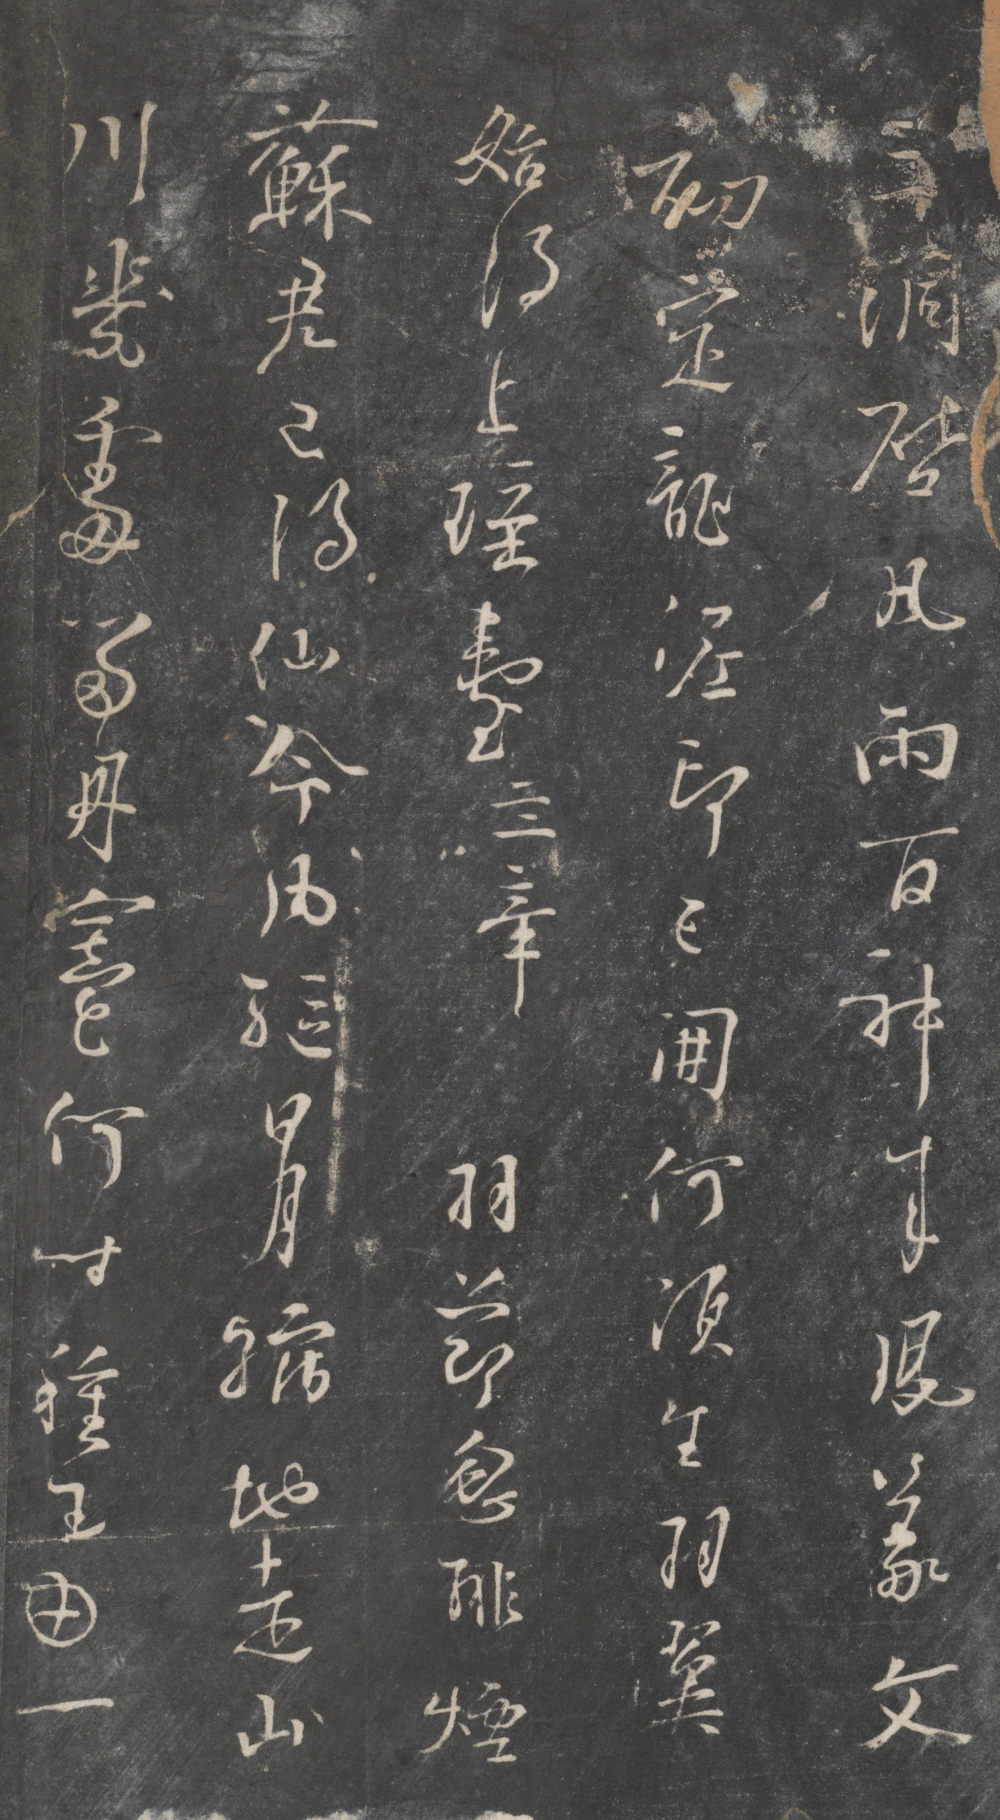 洞啓風雨百神來鳳篆文
初定龍泥印已開何須生羽翼
始得上瑤臺三章　羽節忽排煙
蘇君已得仙命風驅日月縮地走山
川幾處留丹竈何時種玉田一